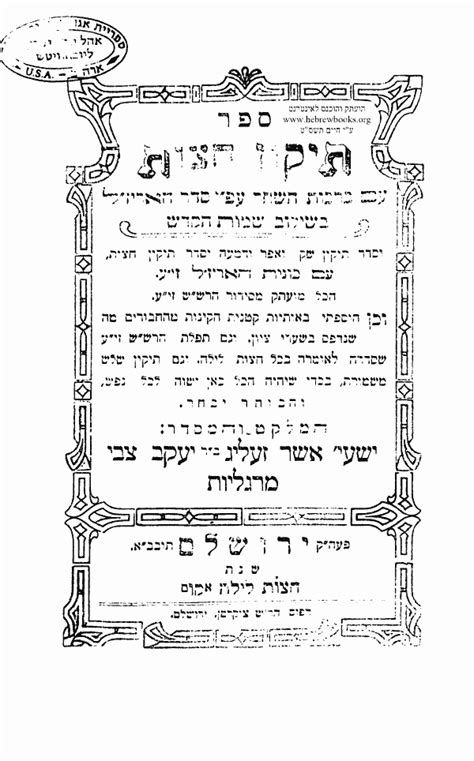 ספריית אגו
אהל
ליובאוויטש
U.S.A. ארה
הועתק והוכנס לאינטרנט
www.hebrewbooks.org
ע״י חיים תשס״ט
ספר
תיקון חצות
עם מרמות השחר עפ״י סדר האריז״ל
בשילוב שמות הקדש
וסדר תיקון שק ואפר ודמעה וסדר תיקון חצות,
עם כונות האריז״ל זי״ע.
הכל מועתק מסידור הרש״ש זי״ע.
וכן הוספתי באותיות קטנות הקינות מהחבורים מה
שנדפס בשערי ציון. וגם תפלת הרש״ש זי״ע
שסדרה לאומרה בכל חצות לילה. וגם תיקון שלש
משמורת, בכדי שיהיה הכל כאן ישוה לכל נפש,
והבוחר יבחר.
המלקט והמסדר:
ישעי׳ אשר זעליג בר יעקב צבי
מרגליות
פעה״ק ירושלם תובב״א.
שנת
חצות לילה אקום
דפוס הר״ש צוקרמן, ירושלם.